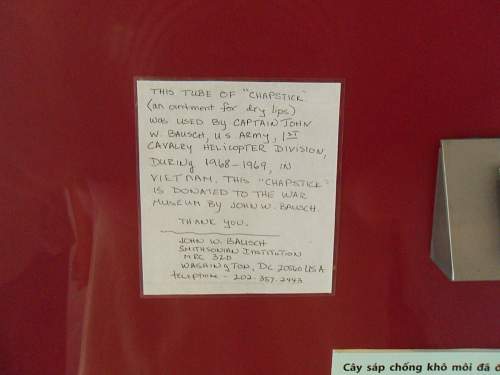 THIS TUBE OF "CHAPSTICK"
(an ointment for dry lips)
WAS USED BY CAPTAIN JOHN
W. BAUSCH, US ARMY, 1ST
CAVALRY HELICOPTER DIVISION,
DURING 1968-1969, IN
VIETNAM. THIS "CHAPSTICK"
IS DONATED TO THE WAR
MUSEUM BY JOHN W. BAUSCH.
THANK YOU.
JOHN W. BAUSCH
SMITHSONIAN INSTITUTION
MRC 320
WASHINGTON, DC 20560 USA
telephone - 202-357-2443
Cây sáp chống khô môi đã